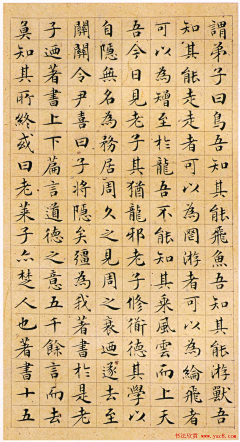 謂弟子曰鳥吾知其能飛魚吾知其能游獸吾
知其能走走者可以為罔游者可以為綸飛者
可以為矰至於龍吾不能知其乘風雲而上天
吾今日見老子其猶龍邪老子修衜德其學以
自隱無名為務居周久之見周之衰迺遂去至
關關令尹喜曰子將隱矣彊為我著書於是老
子迺著書上下篇言道德之意五千餘言而去
莫知其所終或曰老萊子亦楚人也著書十五
书法欣赏
www.yac8.com